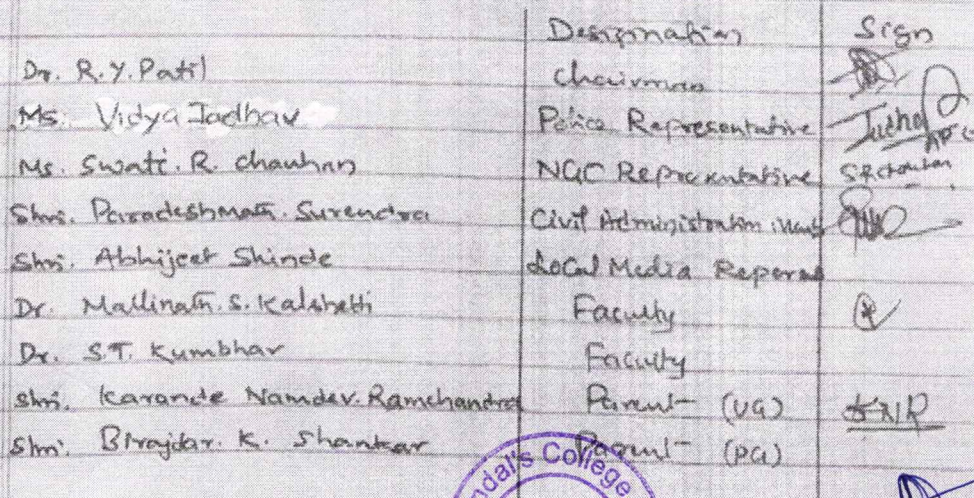 Designation Sign
Dr. R.Y. Patil chairman
Ms. Vidya Jadhav Police Representative
Ms. Swati. R. chauhan NGO Representative SRchauhan
Shri. Paradeshmath. Surendra Civil Administration
Shri. Abhijeet Shinde Local Media
Dr. Mallinath. S. Kalshetti Faculty
Dr. S.T. Kumbhar Faculty
Shri. Karande Namdev. Ramchandra Parent (UG) KNR
Shri. Birajdar. K. Shankar Parent (PG)
ndal's College